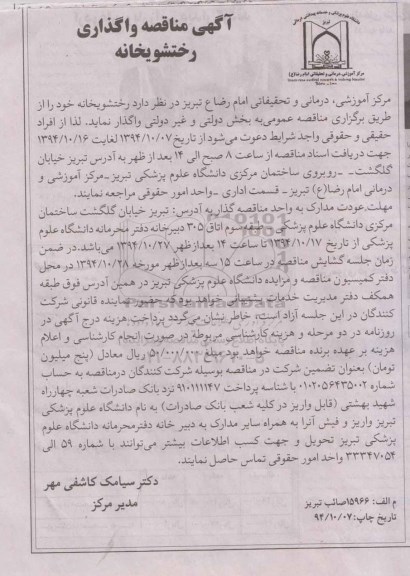 آگهی مناقصه واگذاری
رختشویخانه
مرکز آموزشی، درمانی و تحقیقاتی امام رضا ع تبریز در نظر دارد رختشویخانه خود را از
طریق برگزاری مناقصه عمومی به بخش دولتی و غیر دولتی واگذار نماید. لذا از افراد
حقیقی و حقوقی واجد شرایط دعوت می‌شود از تاریخ ۱۳۹۴/۱۰/۰۷ لغایت ۱۳۹۴/۱۰/۱۶
جهت دریافت اسناد مناقصه از ساعت ۸ صبح الی ۱۴ بعد از ظهر به آدرس تبریز خیابان
گلگشت - -روبروی ساختمان مرکزی دانشگاه علوم پزشکی تبریز-مرکز آموزشی و
درمانی امام رضا(ع) تبریز- قسمت اداری -واحد امور حقوقی مراجعه نمایند.
مهلت عودت مدارک به واحد مناقصه گذار به آدرس: تبریز خیابان گلگشت ساختمان
مرکزی دانشگاه علوم پزشکی - طبقه سوم اتاق ۳۰۵ دبیرخانه دفتر محرمانه دانشگاه علوم
پزشکی از تاریخ ۱۳۹۴/۱۰/۱۷ تا ساعت ۱۴ بعدازظهر ۱۳۹۴/۱۰/۲۷ می‌باشد.در ضمن
زمان جلسه گشایش مناقصه در ساعت ۱۵ سه بعدازظهر مورخه ۱۳۹۴/۱۰/۲۸ در محل
دفتر کمیسیون مناقصه و مزایده دانشگاه علوم پزشکی تبریز در همین آدرس فوق طبقه
همکف دفتر مدیریت خدمات پشتیبانی خواهد بود که حضور نماینده قانونی شرکت
کنندگان در این جلسه آزاد است، خاطر نشان می‌گردد پرداخت هزینه درج آگهی در
روزنامه در دو مرحله و هزینه کارشناسی مربوطه در صورت انجام کارشناسی و اعلام
هزینه بر عهده برنده مناقصه خواهد بود مبلغ ریال معادل (پنج میلیون
تومان) بعنوان تضمین شرکت در مناقصه بوسیله شرکت کنندگان درمناقصه به حساب
شماره ۰۱۰۲۰۵۶۴۳۵۰۰۲ با شناسه پرداخت ۹۱۰۱۱۱۱۴۷ نزد بانک صادرات شعبه چهارراه
شهید بهشتی (قابل واریز در کلیه شعب بانک صادرات) به نام دانشگاه علوم پزشکی
تبریز واریز و فیش آنرا به همراه سایر مدارک به دبیر خانه دفترمحرمانه دانشگاه علوم
پزشکی تبریز تحویل و جهت کسب اطلاعات بیشتر می‌توانند با شماره ۵۹ الی
۳۳۳۴۷۰۵۴ واحد امور حقوقی تماس حاصل نمایند.
دکتر سیامک کاشفی مهر
مدیر مرکز
م الف: ۱۵۹۶۶صائب تبریز
تاریخ چاپ:۹۴/۱۰/۰۷